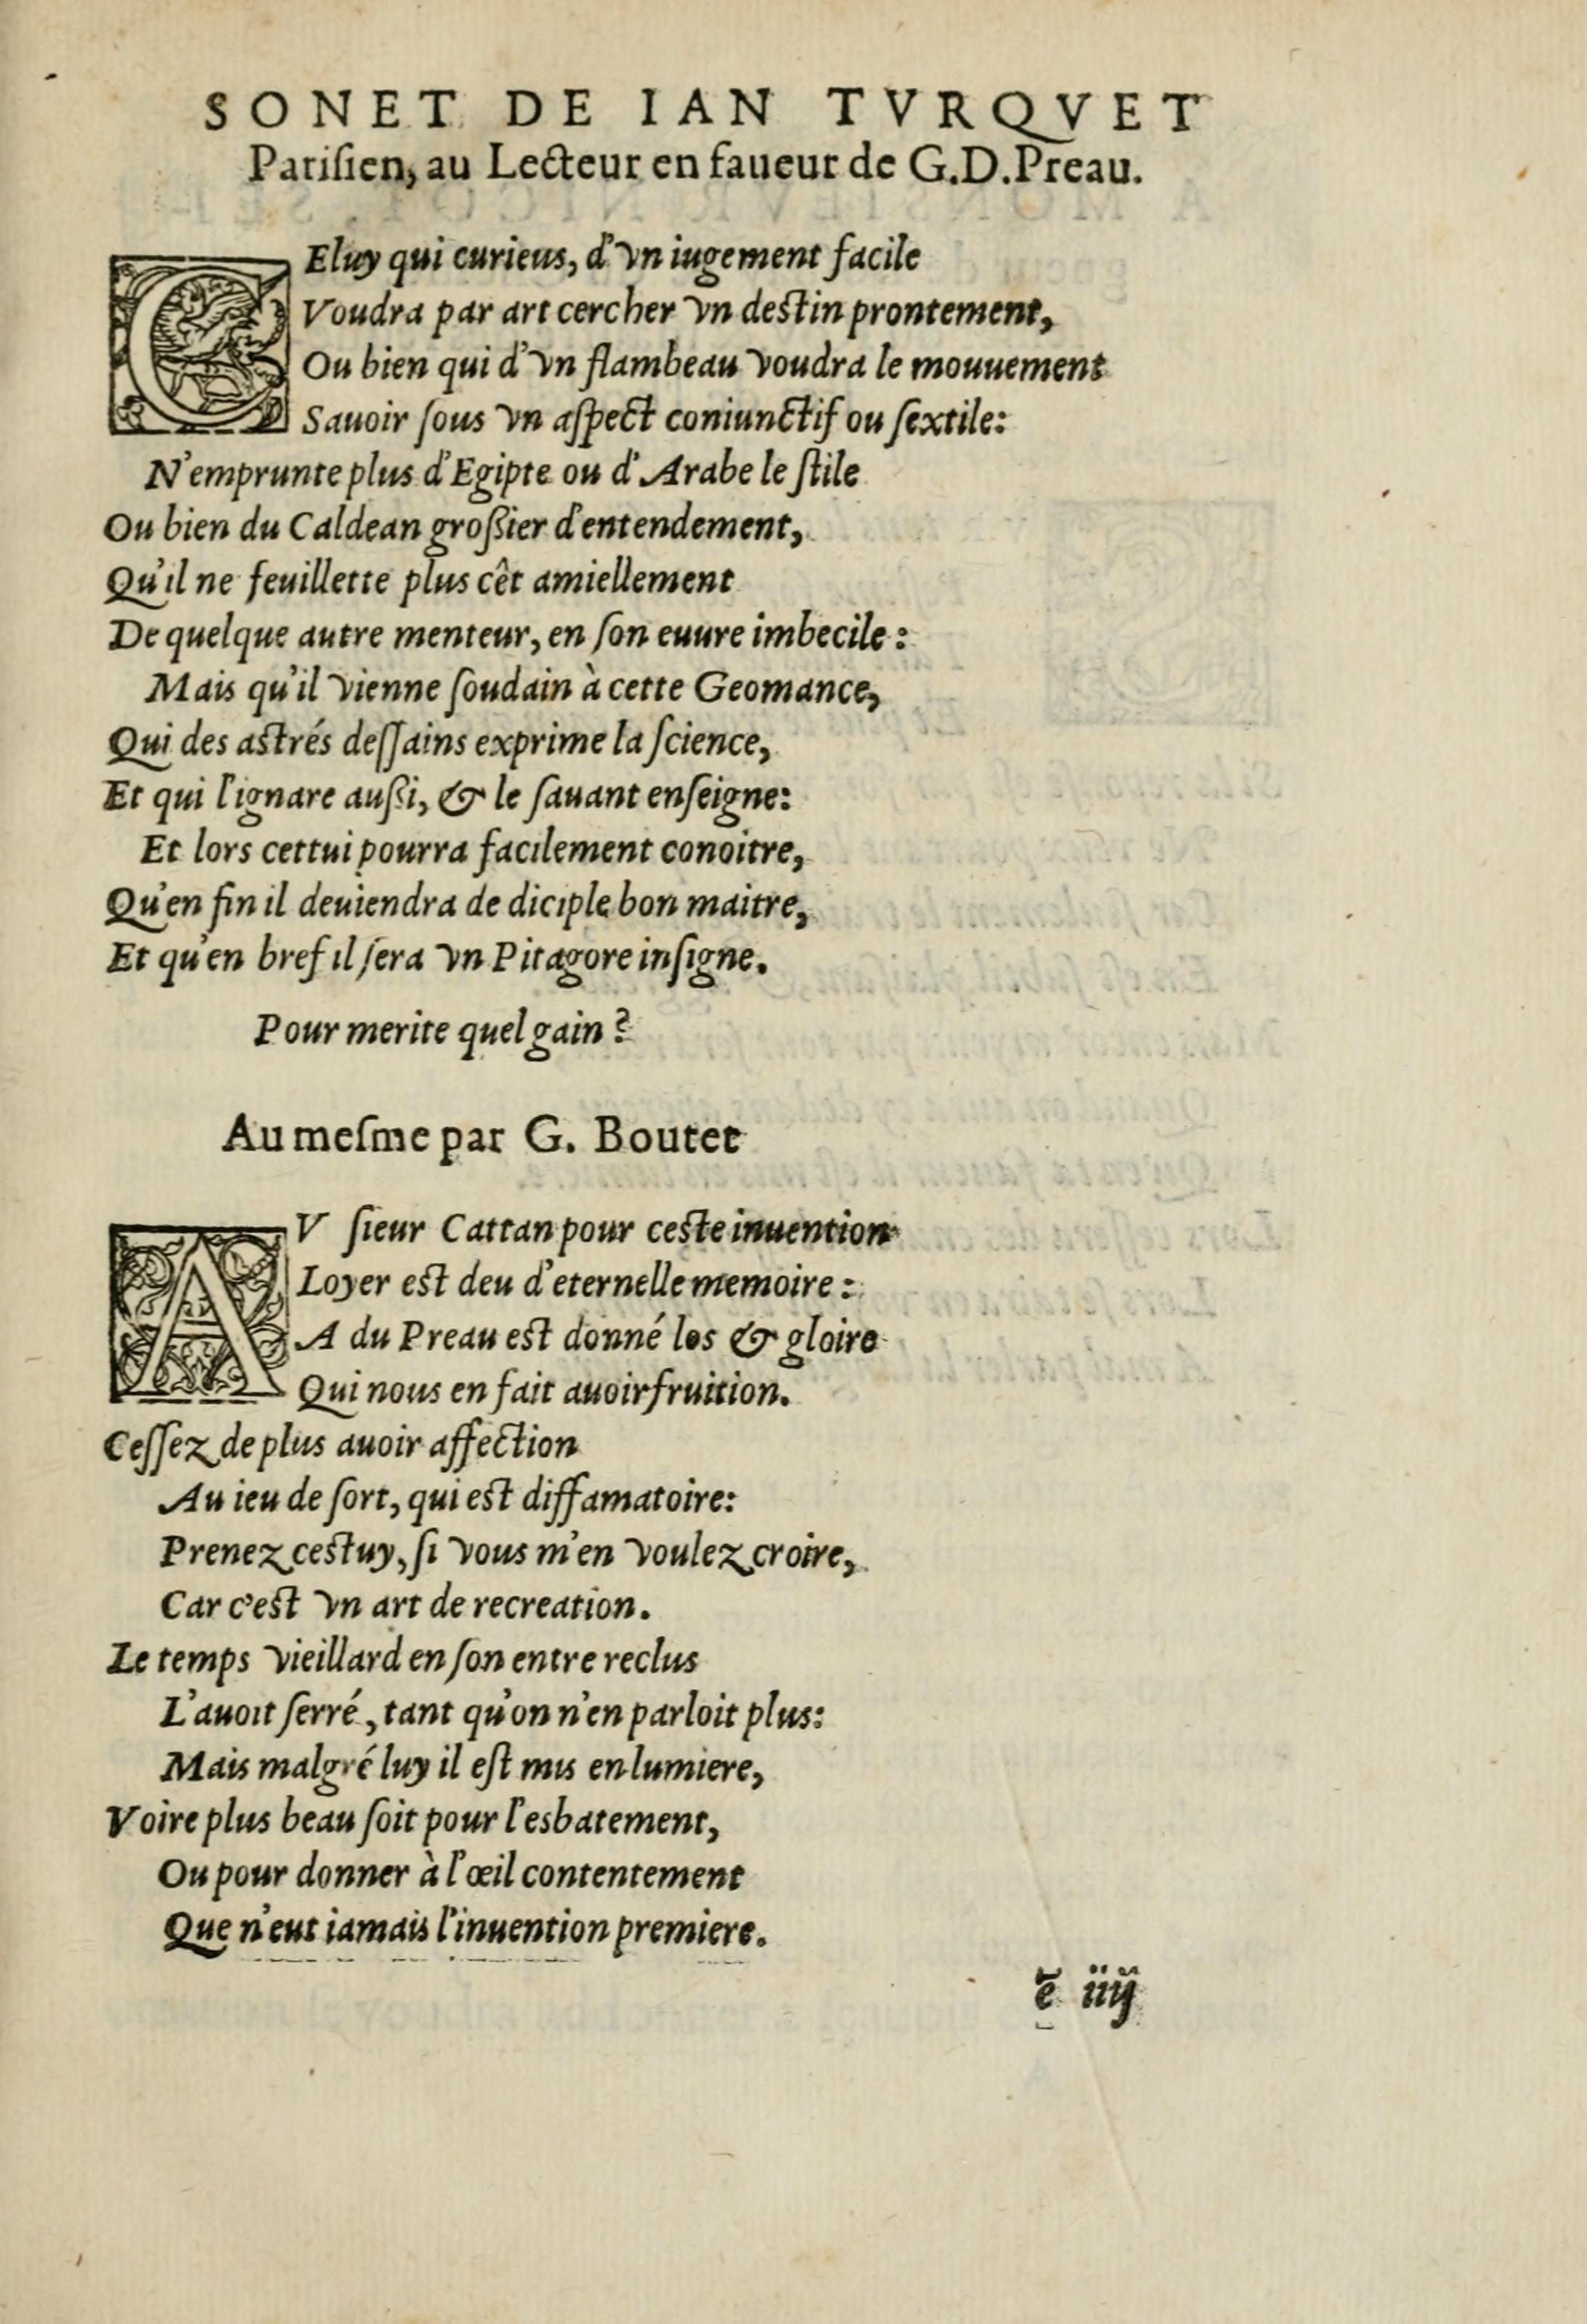 SONET DE IAN TVRQVET
Pariſien, au Lecteur en faueur de G.D.Preau.
CEluy qui curieus, d'vn iugement facile
Voudra par art cercher vn deſtin prontement,
Ou bien qui d'vn flambeau voudra le mouuement
Sauoir ſous vn aſpect coniunctif ou ſextile:
N'emprunte plus d'Egipte ou d'Arabe le ſtile
Ou bien du Caldean groſſier d'entendement,
Qu'il ne feuillette plus cêt amiellement
De quelque autre menteur, en ſon euure imbecile:
Mais qu'il vienne ſoudain à cette Geomance,
Qui des aſtrés deſſains exprime la ſcience,
Et qui l'ignare auſſi, & le ſauant enſeigne:
Et lors cettui pourra facilement conoitre,
Qu'en fin il deuiendra de diciple bon maitre,
Et qu'en bref il ſera vn Pitagore inſigne.
Pour merite quel gain?
Au meſme par G. Boutet
AV ſieur Cattan pour ceſte inuention
Loyer eſt deu d'eternelle memoire:
A du Preau eſt donné los & gloire
Qui nous en fait auoir fruition.
Ceſſez de plus auoir affection
Au ieu de ſort, qui eſt diffamatoire:
Prenez ceſtuy, ſi vous m'en voulez croire,
Car c'eſt vn art de recreation.
Le temps vieillard en ſon entre reclus
L'auoit ſerré, tant qu'on n'en parloit plus:
Mais malgré luy il eſt mis en lumiere,
Voire plus beau ſoit pour l'esbatement,
Ou pour donner à l'œil contentement
Que n'eut iamais l'inuention premiere.
ẽ iiij